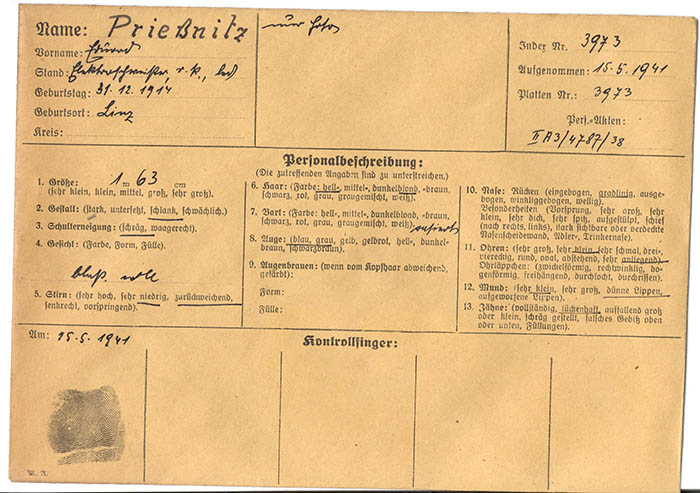 Name: Prießnitz
Vorname: Eduard
Stand: Elektroschweißer, r.k., led
Geburtstag: 31.12.1914
Geburtsort: Linz
Kreis:
nur Foto
Index Nr. 3973
Aufgenommen: 15.5.1941
Platten Nr.: 3973
Pers.-Akten:
II A3/4787/38
Personalbeschreibung:
(Die zutreffenden Angaben sind zu unterstreichen).
1. Größe: 1 m 63 cm
(sehr klein, klein, mittel, groß, sehr groß).
2. Gestalt: (stark, untersetzt, schlank, schwächlich).
3. Schulterneigung: (schräg, waagerecht).
4. Gesicht: (Farbe, Form, Fülle).
blaß voll
5. Stirn: (sehr hoch, sehr niedrig, zurückweichend,
senkrecht, vorspringend).
6. Haar: (Farbe: hell-, mittel-, dunkelblond, -braun,
schwarz, rot, grau, graugemischt, weiß).
7. Bart: (Farbe: hell-, mittel-, dunkelblond, -braun,
schwarz, rot, grau, graugemischt, weiß). rasiert
8. Auge: (blau, grau, gelb, gelbrot, hell-, dunkel-
braun, schwarzbraun).
9. Augenbrauen: (wenn vom Kopfhaar abweichend,
gefärbt):
Form:
Fülle:
10. Nase: Rücken (eingebogen, gradlinig, ausge-
bogen, winkliggebogen, wellig).
Besonderheiten (Vorsprung, sehr groß, sehr
klein, sehr dick, sehr spitz, aufgestülpt, schief
(nach rechts, links), stark sichtbare oder verdeckte
Nasenscheidewand, Adler-, Trinkernase).
11. Ohren: (sehr groß, sehr klein, sehr schmal, drei-,
viereckig, rund, oval, abstehend, sehr anliegend).
Ohrläppchen: (zwickelförmig, rechtwinklig, bo-
genförmig, freihängend, durchlocht, durchrissen).
12. Mund: (sehr klein, sehr groß, dünne Lippen,
aufgeworfene Lippen).
13. Zähne: (vollständig, lückenhaft, auffallend groß
oder klein, schräg gestellt, falsches Gebiß oben
oder unten, Füllungen).
Am: 15.5.1941
Kontrollfinger: